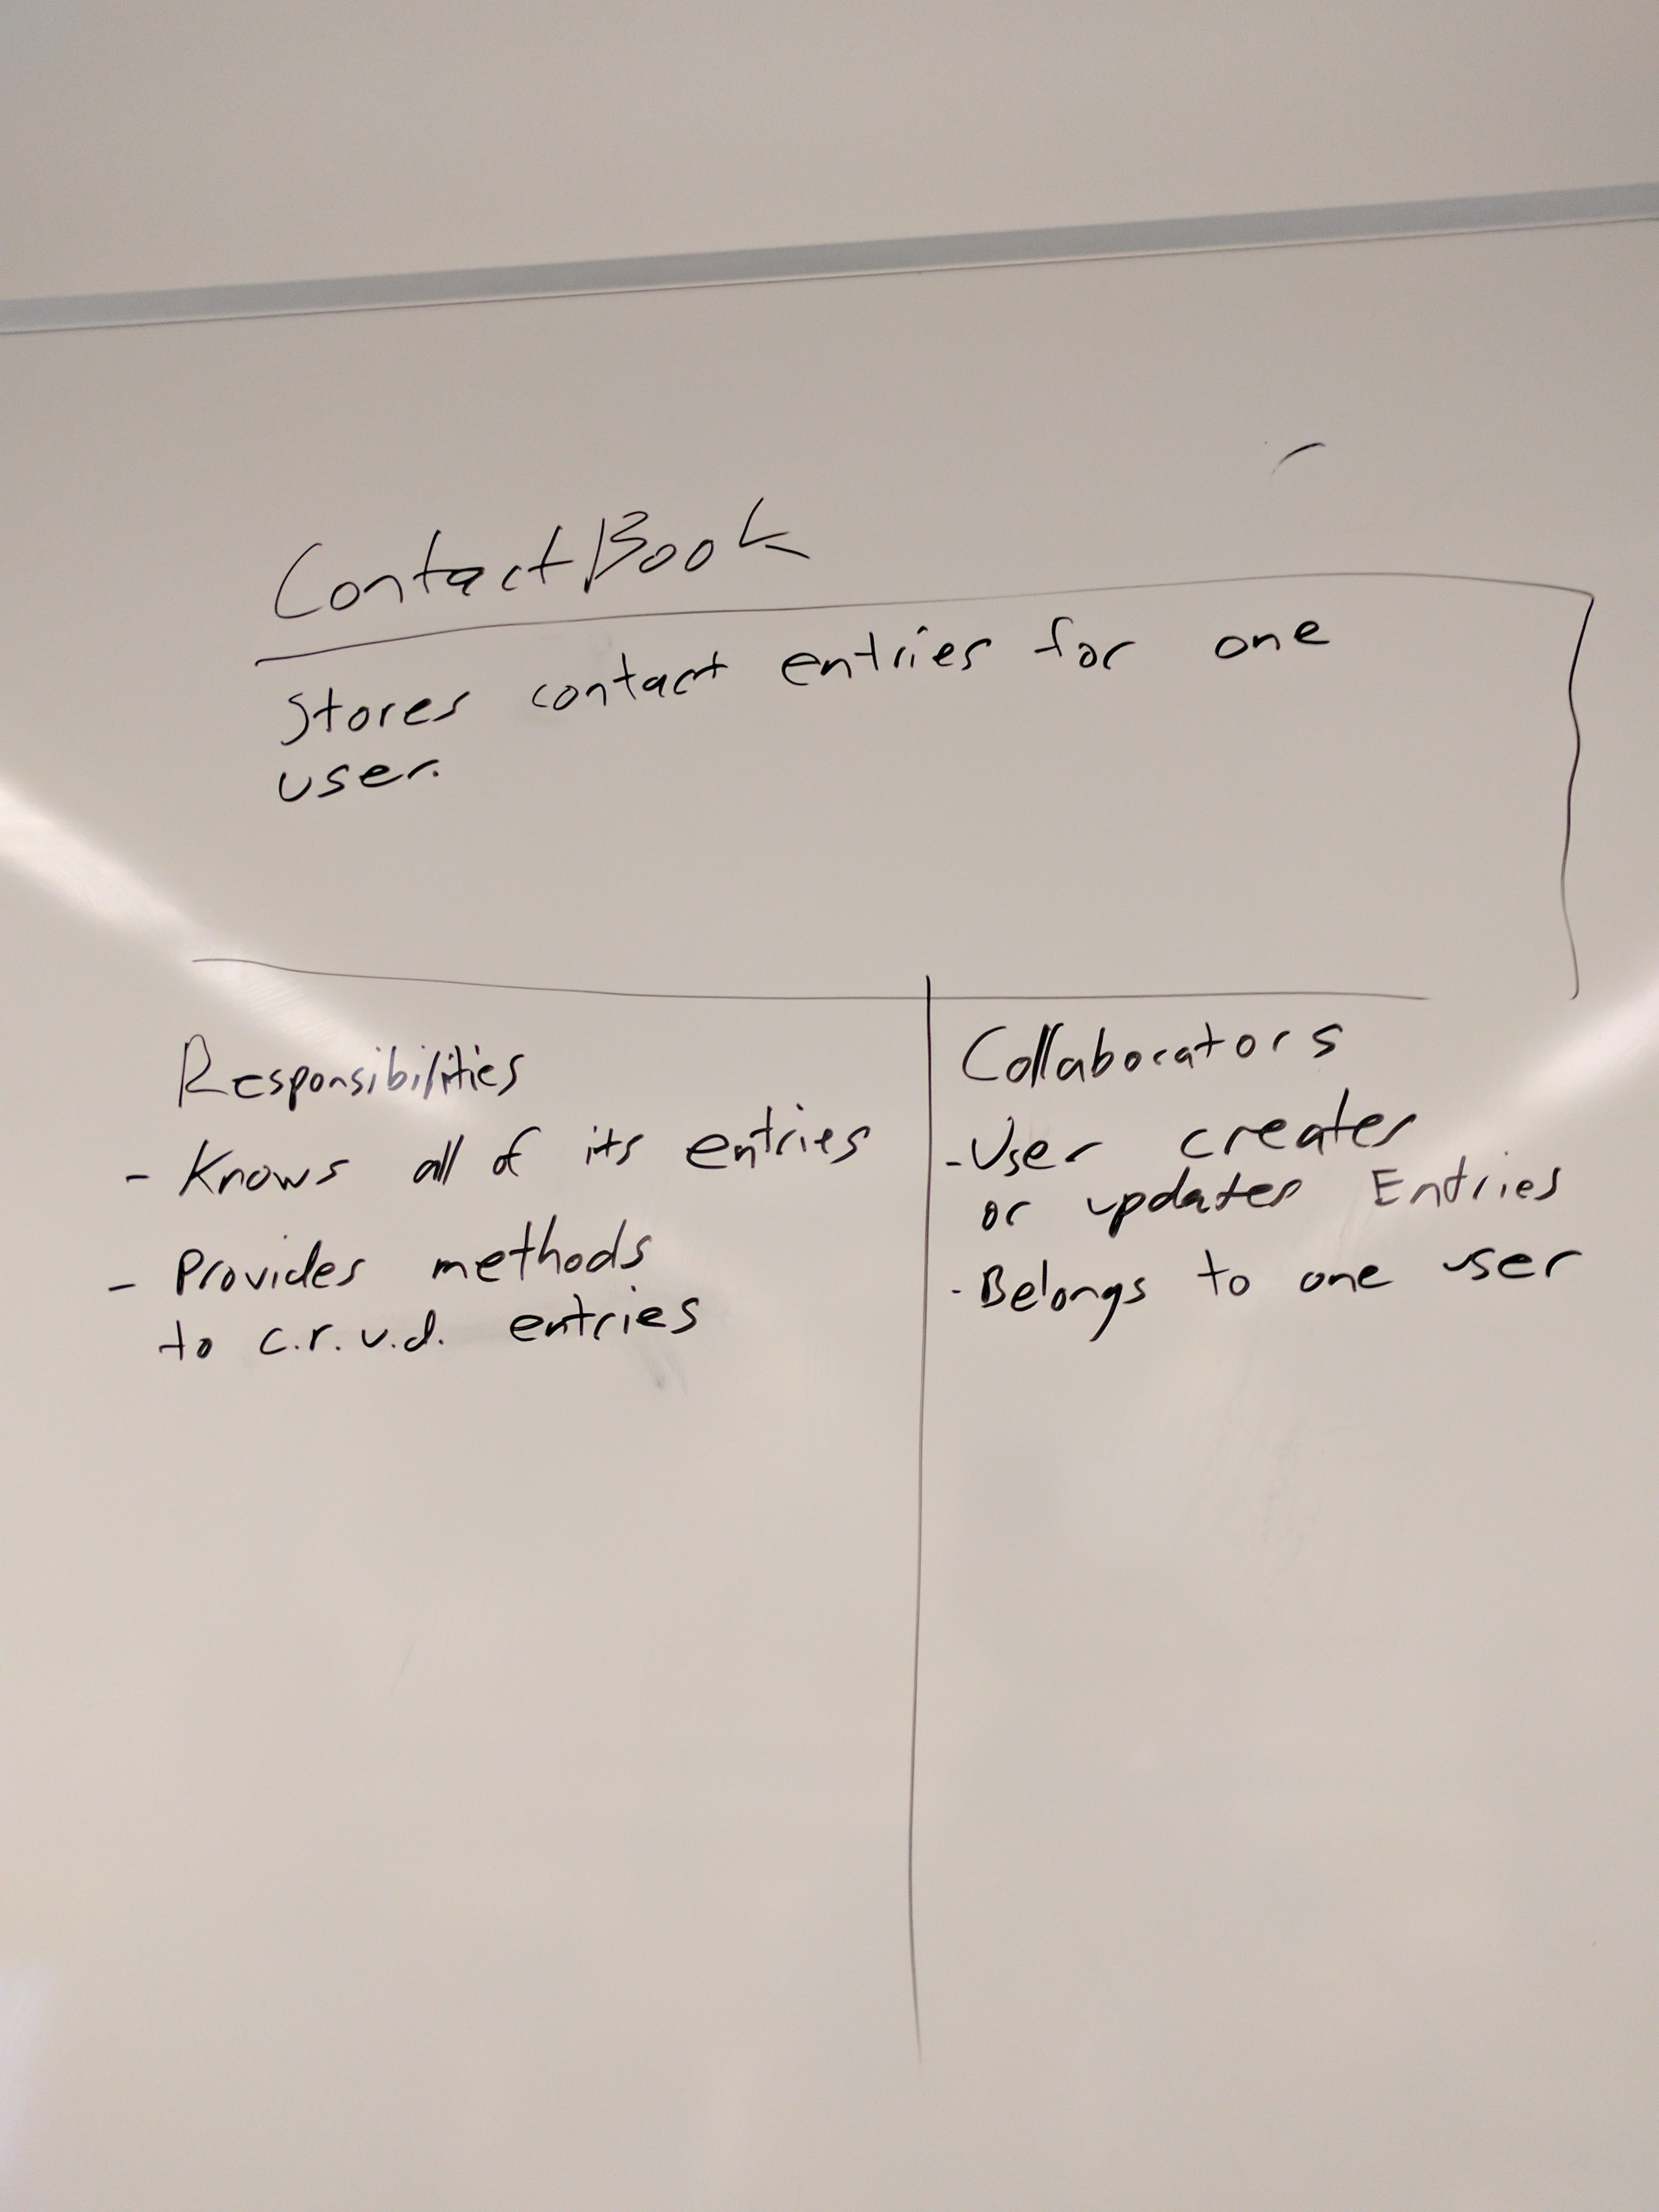 ContactBook
Stores contact entries for one
user.
Responsibilities
- Knows all of its entries
- Provides methods
to c.r.u.d. entries
Collaborators
- User creates
or updates Entries
- Belongs to one user